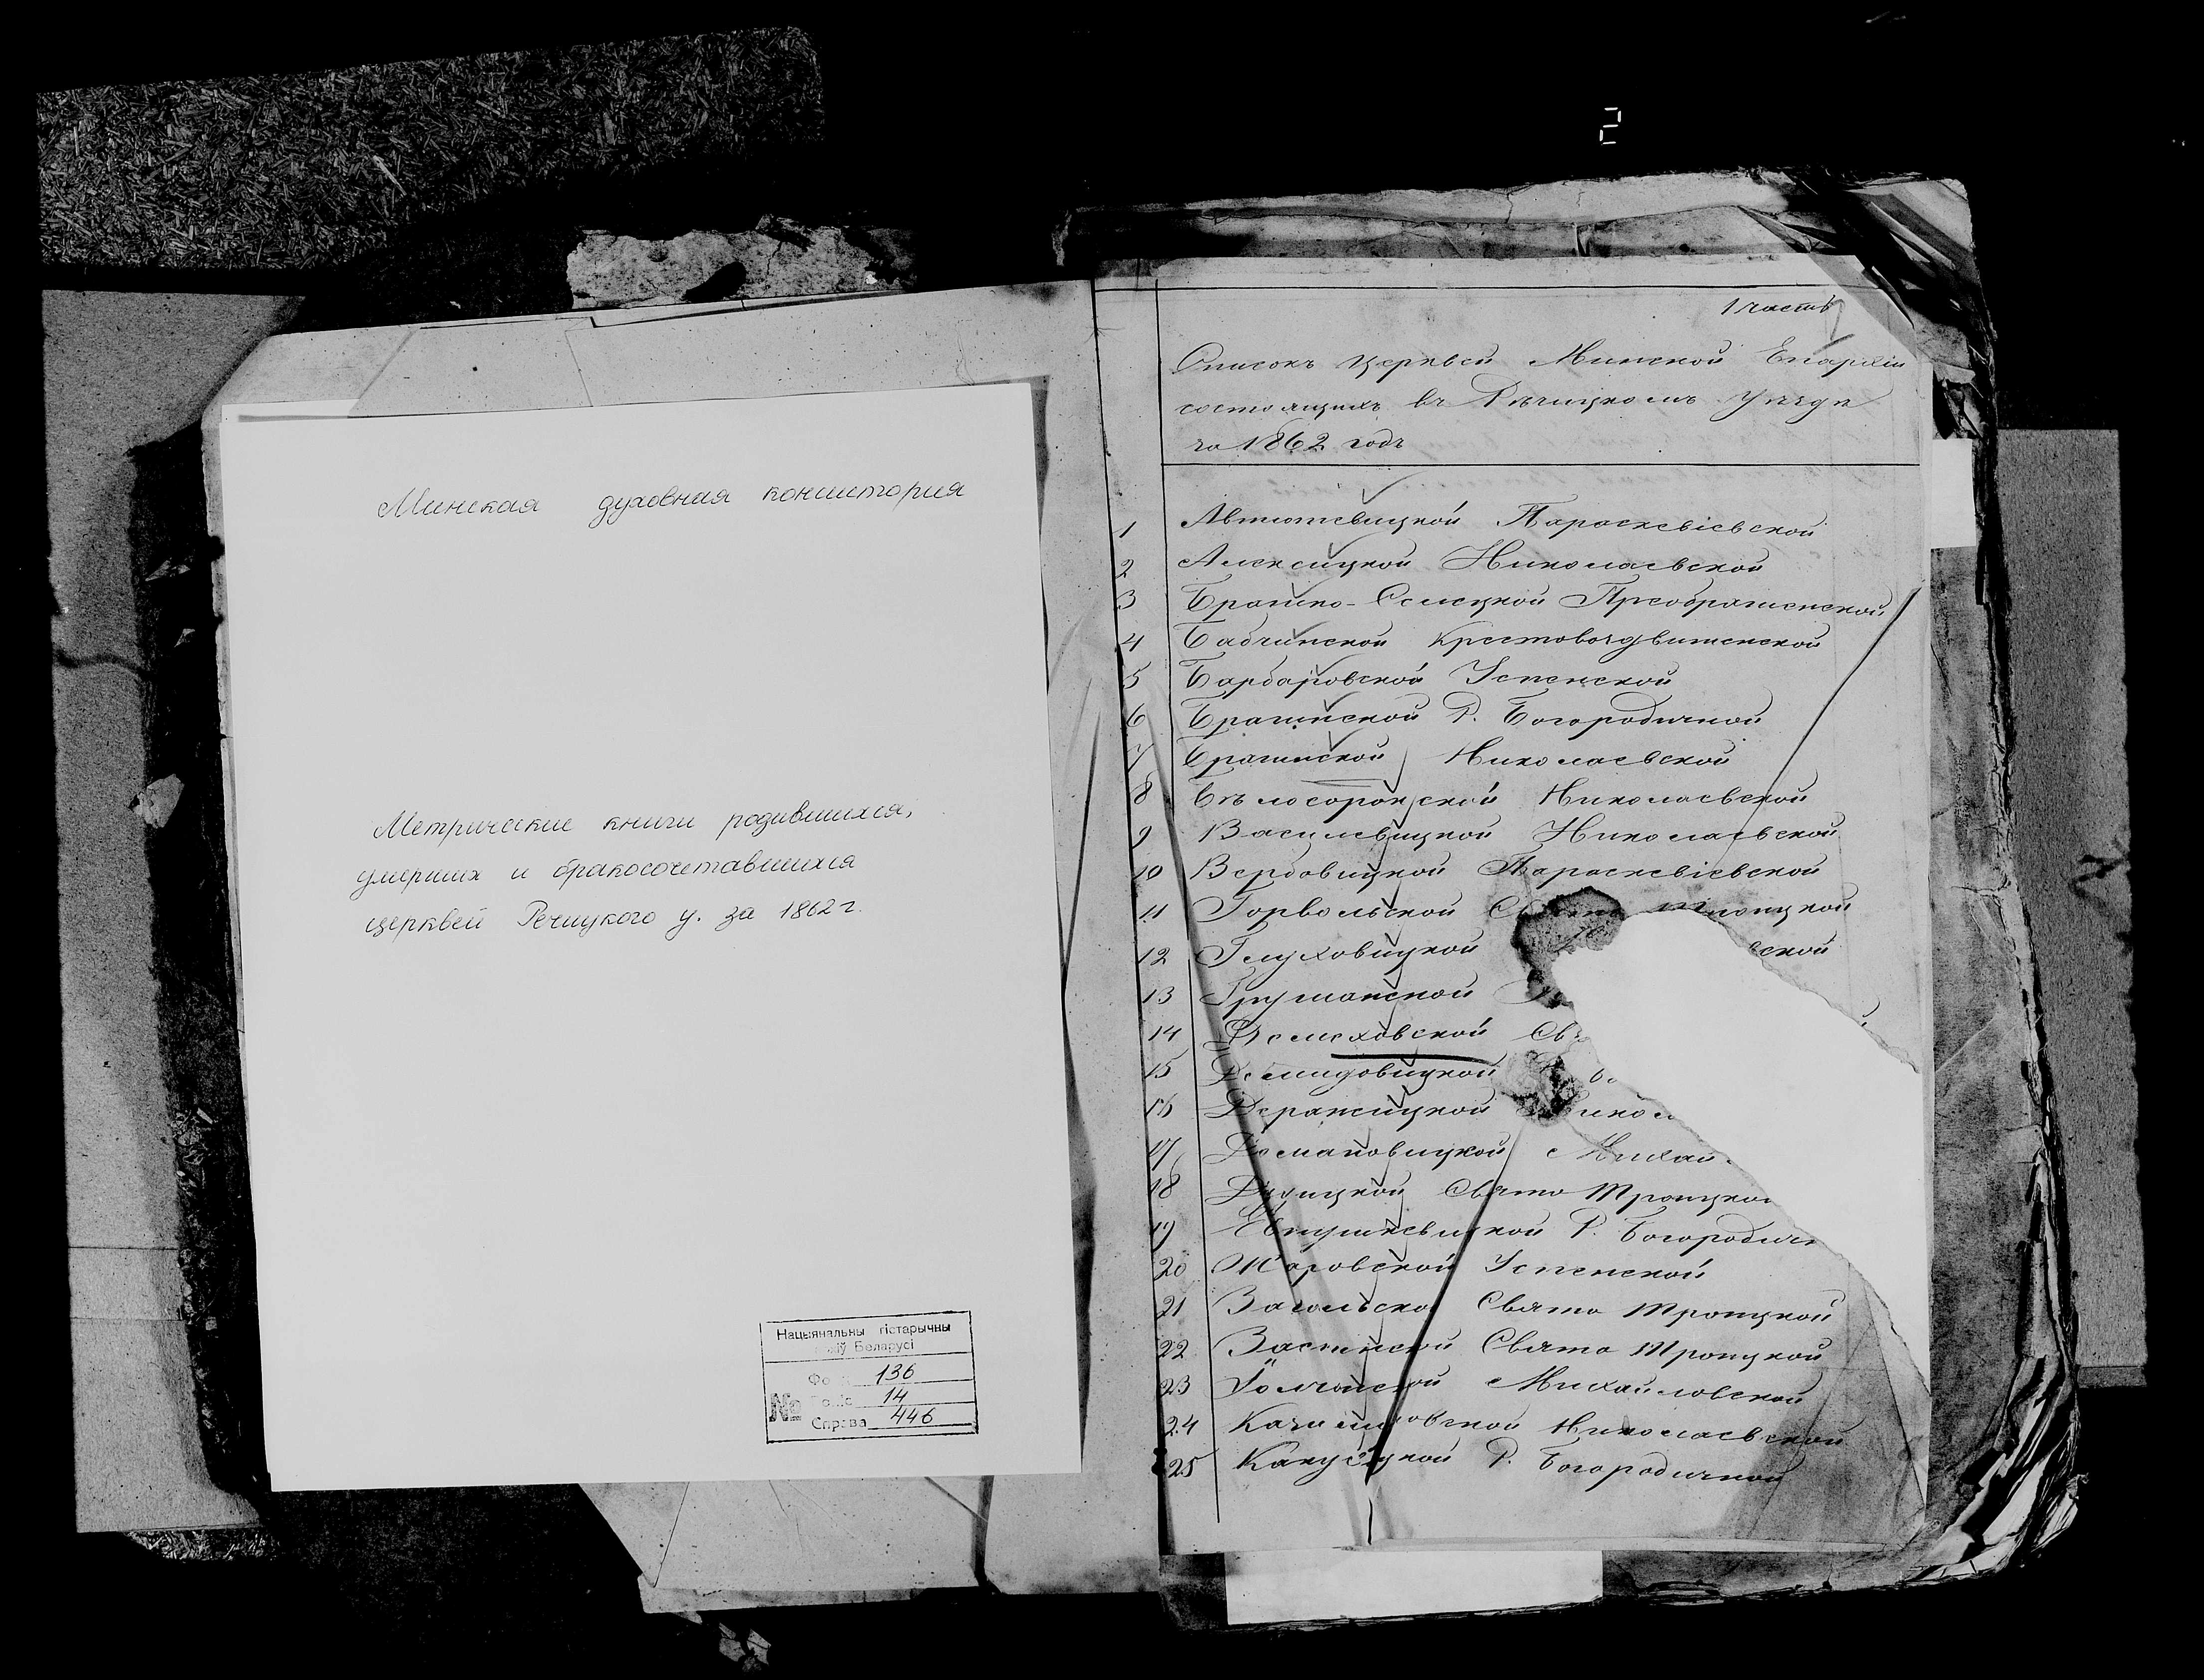 2
Минская духовная консистория
Метрические книги родившихся,
умерших и бракосочетавшихся
церквей Речицкого у. за 1862 г.
Нацыянальны гістарычны
Беларусі
136
14
№
Справа 446
1 часть
Списокъ церквей Минской Епархіи
состоящихъ въ Рѣчицкомъ Уѣздѣ
за 1862 годъ
1 Автютевицкой Параскевіевской
2 Алексицкой Николаевской
3 Селецкой Преображенской
4 Бабчинской Крестовоздвиженской
5 Барбаровской Успенской
6 Брагинской Р. Богородичной
7 Брагинской Николаевской
8 Бѣлосорокской Николаевской
9 Василевицкой Николаевской
10 Вербовицкой Параскевіевской
11 Горвольской Троицкой
12 Глуховицкой ской
13 Грушанской
14 Демеховской Св
15 Демидовицкой
16 Деражицкой Никол
17 Домановицкой Михай
18 Дудицкой Свято Троицкой
19 Евтушкевицкой Р. Богородичн
20 Жаровской Успенской
21 Загальской Свято Троицкой
22 Заспенской Свято Троицкой
23 Іолчанской Михайловской
24 Николаевской
25 Р. Богородичной